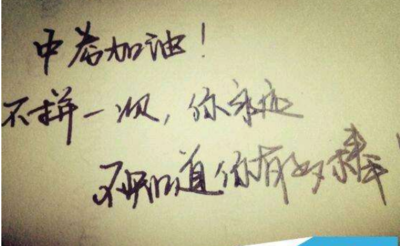 中考加油!
不拼一次,你永远
不知道你有多棒!